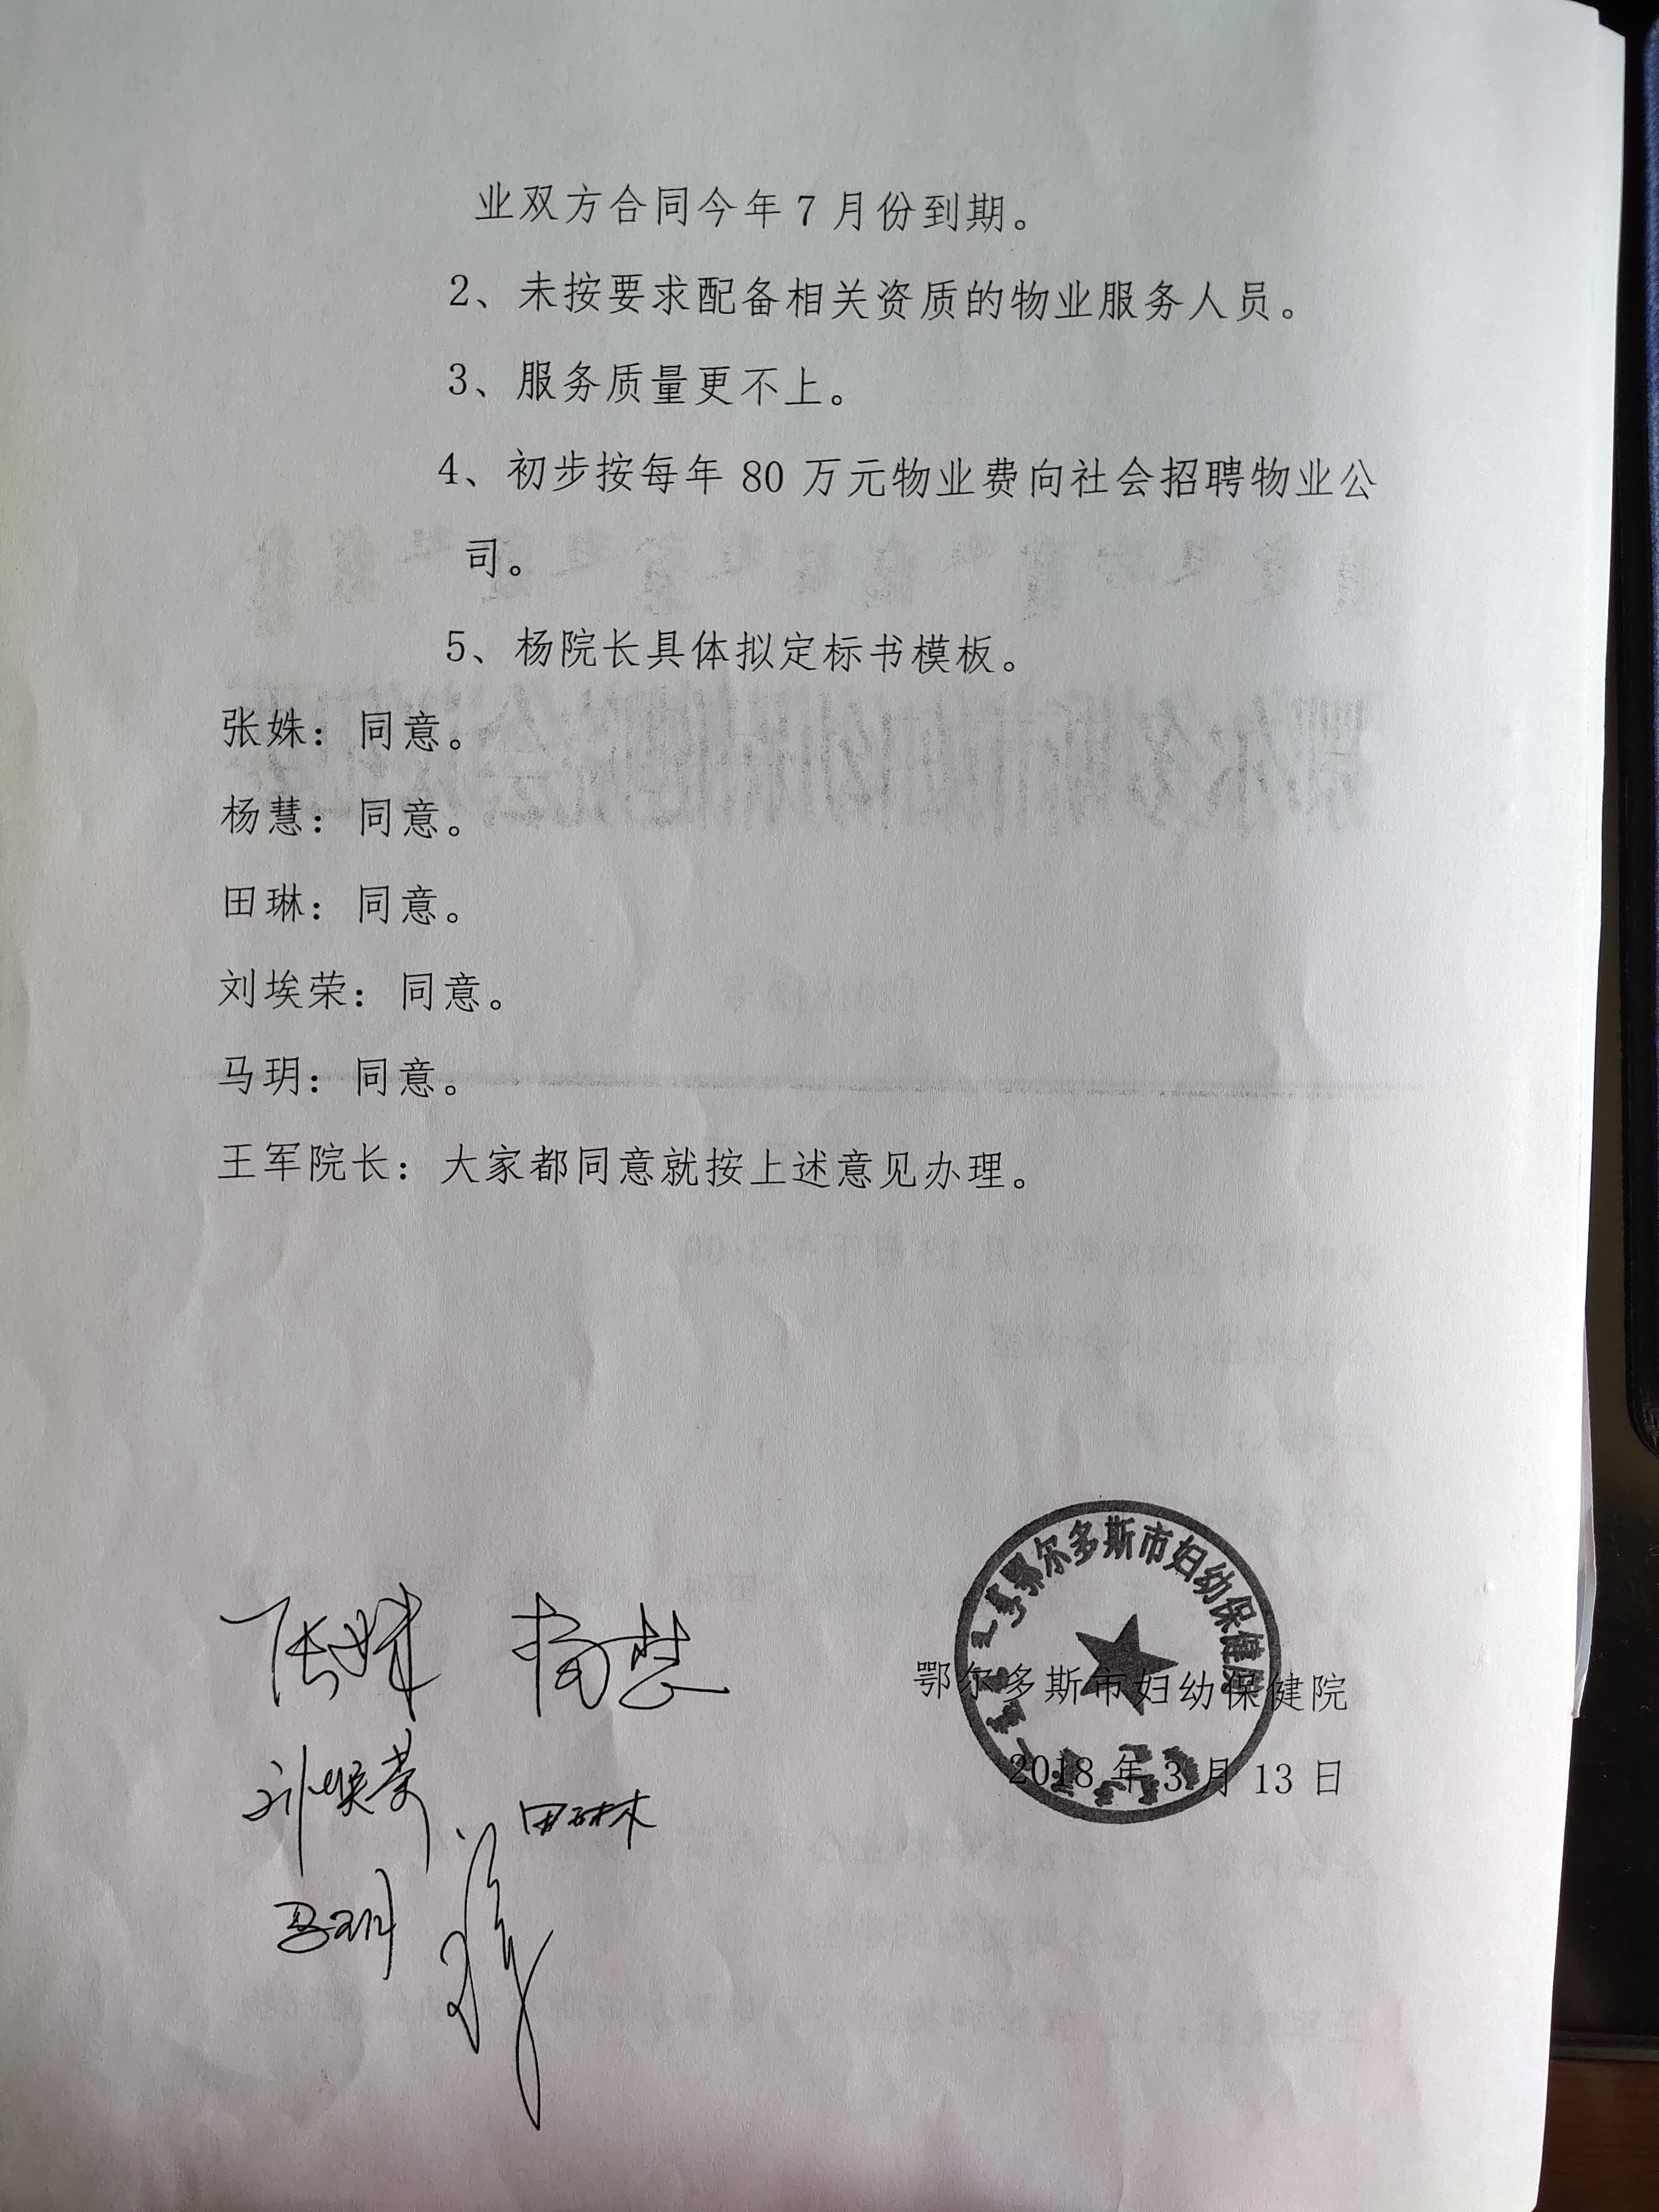 业双方合同今年 7 月份到期。
2、未按要求配备相关资质的物业服务人员。
3、服务质量更不上。
4、初步按每年 80 万元物业费向社会招聘物业公
司。
5、杨院长具体拟定标书模板。
张姝：同意。
杨慧：同意。
田琳：同意。
刘埃荣：同意。
马玥：同意。
王军院长：大家都同意就按上述意见办理。
鄂尔多斯市妇幼保健院
张姝 杨慧
鄂尔多斯市妇幼保健院
2018 年 3 月 13 日
刘埃荣 田琳
马玥